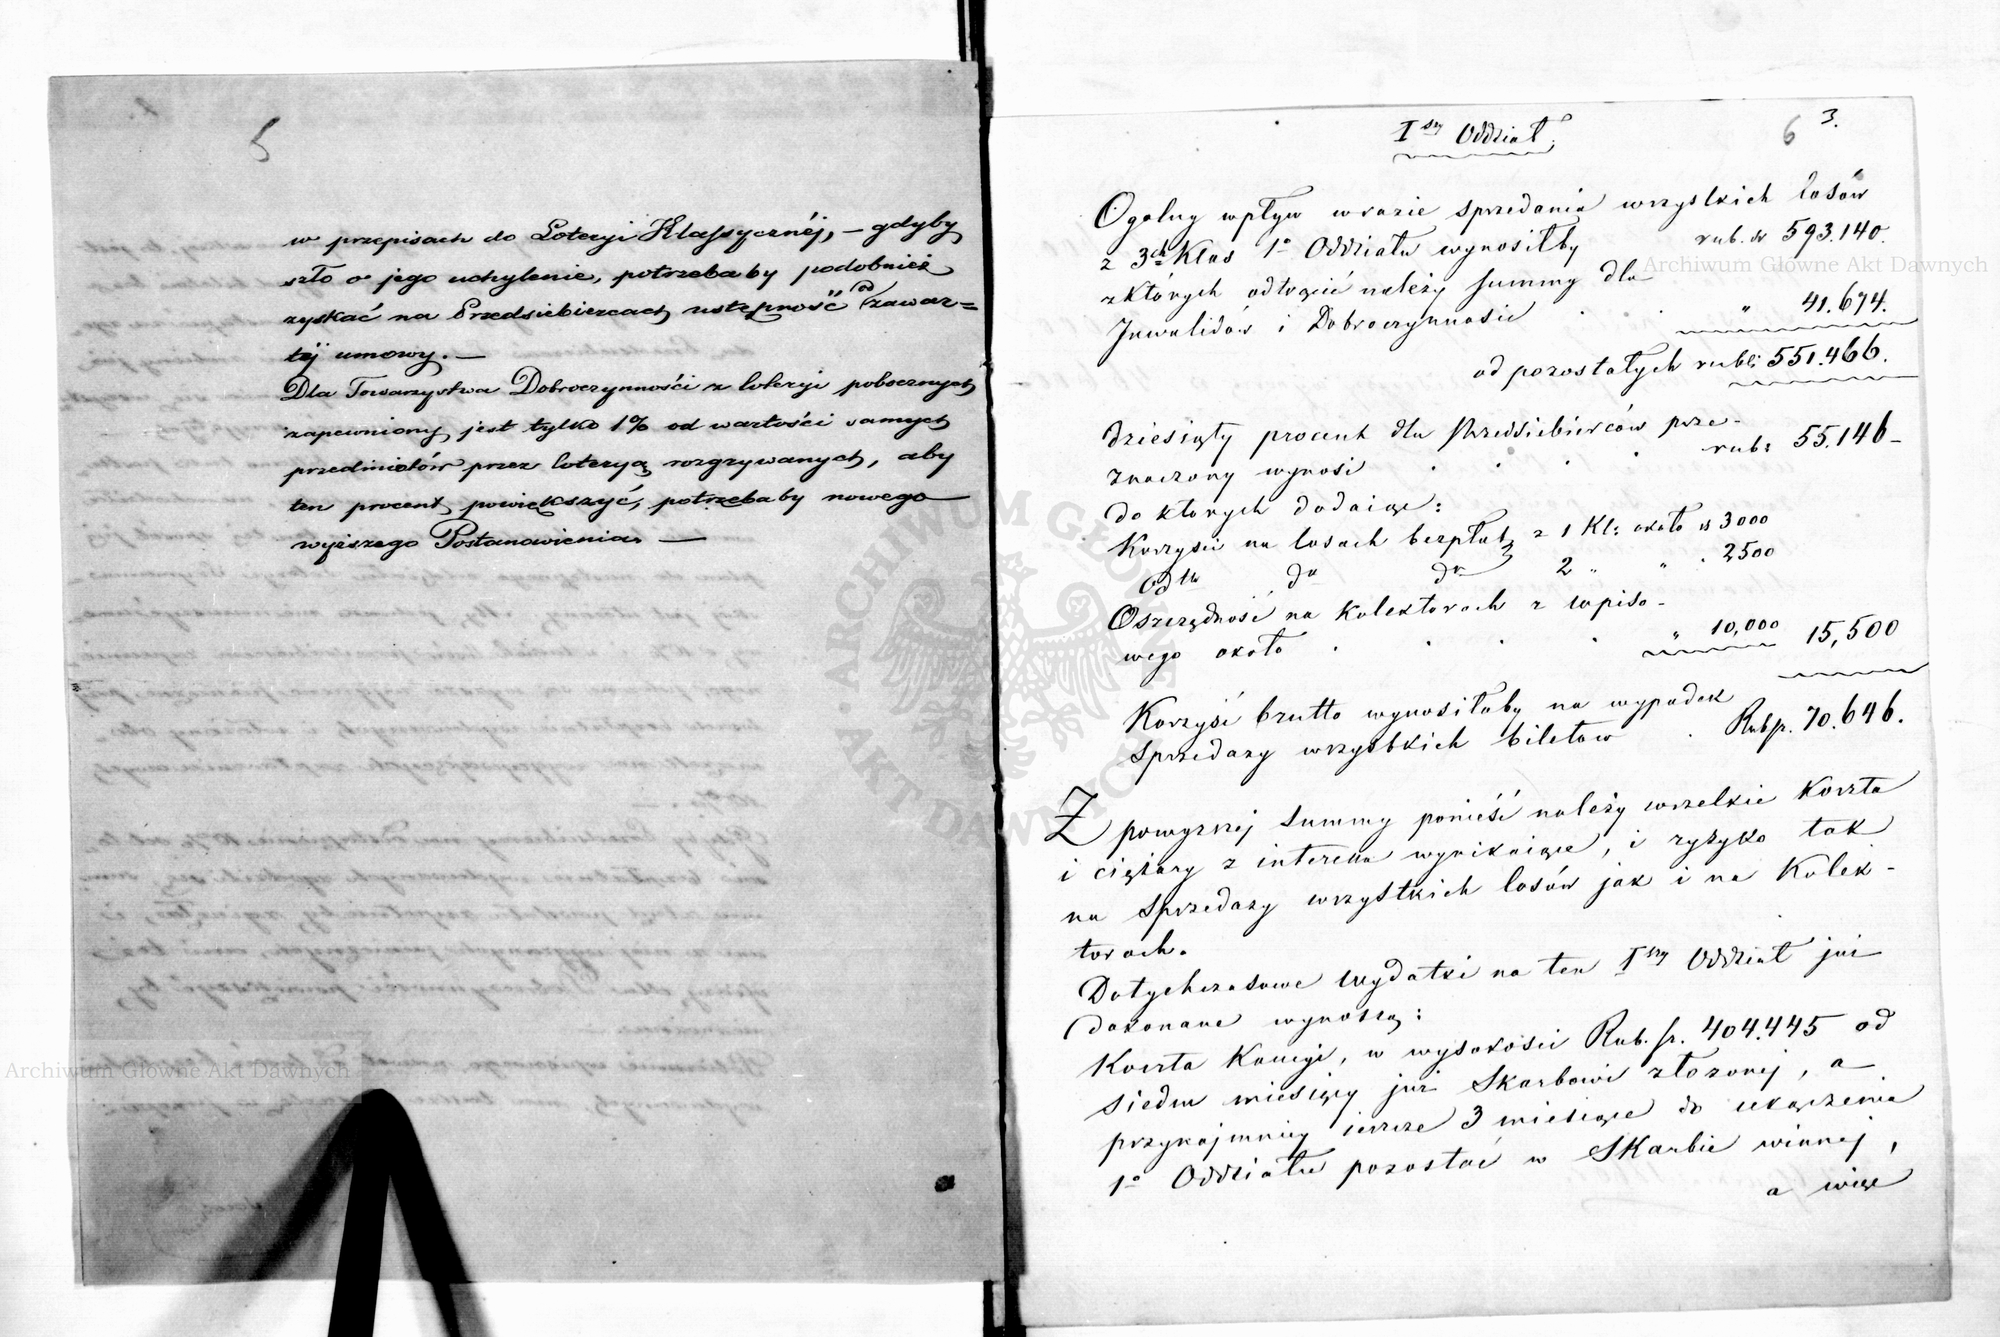 5
w przepisach do Loteryi Klassycznéj, — gdyby
szło o jego uchylenie, potrzebaby podobnież
zyskać na Przedsiebiercach ustępność od zawar=
téj umowy. —
Dla Towarzystwa Dobroczynności z loteryi pobocznych
zapewniony jest tylko 1% od wartości samych
przedmiotów przez loteryą rozgrywanych, aby
ten procent powiększyć, potrzebaby nowego
wyższego Postanowienia. —
6 3.
I szy Oddział.
Ogolny wpływ wrazie sprzedania wszystkich losów
z 3ch Klas 1o Oddziału wynosiłby rub. sr 593.140.
zktórych odtrącić należy summy dla
Inwalidów i Dobroczynnosci . . " 41.674.
od pozostałych rubli 551.466.
dziesiąty procent dla Przedsiebierców prze-
znaczony wynosi . . . . rubs 55.146-
do ktorych dodaiąc:
Korzysci na losach bezpłat z 1 Kl: około rs 3000
Odto do do 2 " " . 2500
Oszczędność na Kolektorach z wpiso-
wego około . . . . " 10,000 15,500
Korzyść brutto wynosiłaby na wypadek
Sprzedazy wszystkich biletow . Rubsr. 70.646.
Z powyzszej Summy ponieść należy wszelkie Koszta
i ciężary z interessu wynikaiące, i ryzyko tak
na Sprzedazy wszystkich losów jak i na Kolek-
torach.
Dotychczasowe wydatki na ten Iszy Oddział już
dokonane wynoszą:
Koszta Kaucyi, w wysokosci Rub. sr. 404.445 od
siedm miesięcy juz Skarbowi złozonej, a
przynajmniey ieszcze 3 miesiące do ukończenia
1o Oddziału pozostać w Skarbie winnej,
a więc
Archiwum Główne Akt Dawnych
Archiwum Główne Akt Dawnych
ARCHIWUM GŁÓWNE AKT DAWNYCH